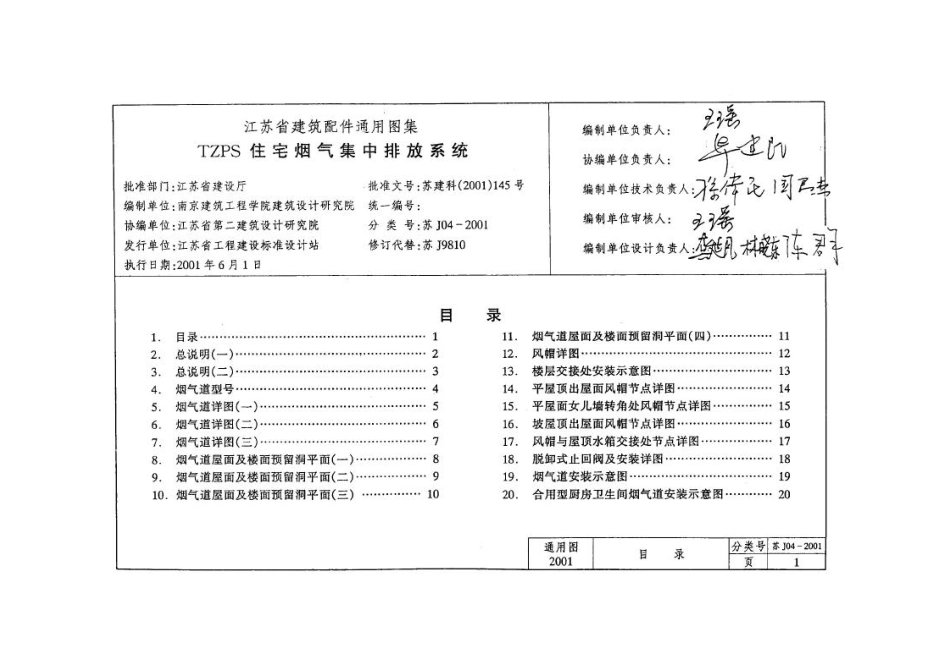 江苏省建筑配件通用图集
TZPS 住宅烟气集中排放系统
批准部门:江苏省建设厅 批准文号:苏建科(2001)145号
编制单位:南京建筑工程学院建筑设计研究院 统一编号:
协编单位:江苏省第二建筑设计研究院 分 类 号:苏 J04-2001
发行单位:江苏省工程建设标准设计站 修订代替:苏 J9810
执行日期:2001年6月1日
编制单位负责人: 王瑶
协编单位负责人:
编制单位技术负责人:
编制单位审核人: 王瑶
编制单位设计负责人:
目 录
1. 目录………………………………… 1
2. 总说明(一)………………………………… 2
3. 总说明(二)………………………………… 3
4. 烟气道型号………………………………… 4
5. 烟气道详图(一)………………………………… 5
6. 烟气道详图(二)………………………………… 6
7. 烟气道详图(三)………………………………… 7
8. 烟气道屋面及楼面预留洞平面(一)………… 8
9. 烟气道屋面及楼面预留洞平面(二)………… 9
10. 烟气道屋面及楼面预留洞平面(三) ………… 10
11. 烟气道屋面及楼面预留洞平面(四)………… 11
12. 风帽详图………………………………… 12
13. 楼层交接处安装示意图………………… 13
14. 平屋顶出屋面风帽节点详图…………… 14
15. 平屋面女儿墙转角处风帽节点详图……… 15
16. 坡屋顶出屋面风帽节点详图…………… 16
17. 风帽与屋顶水箱交接处节点详图………… 17
18. 脱卸式止回阀及安装详图……………… 18
19. 烟气道安装示意图……………………… 19
20. 合用型厨房卫生间烟气道安装示意图……… 20
通用图
2001
目 录
分类号 苏 J04-2001
页 1